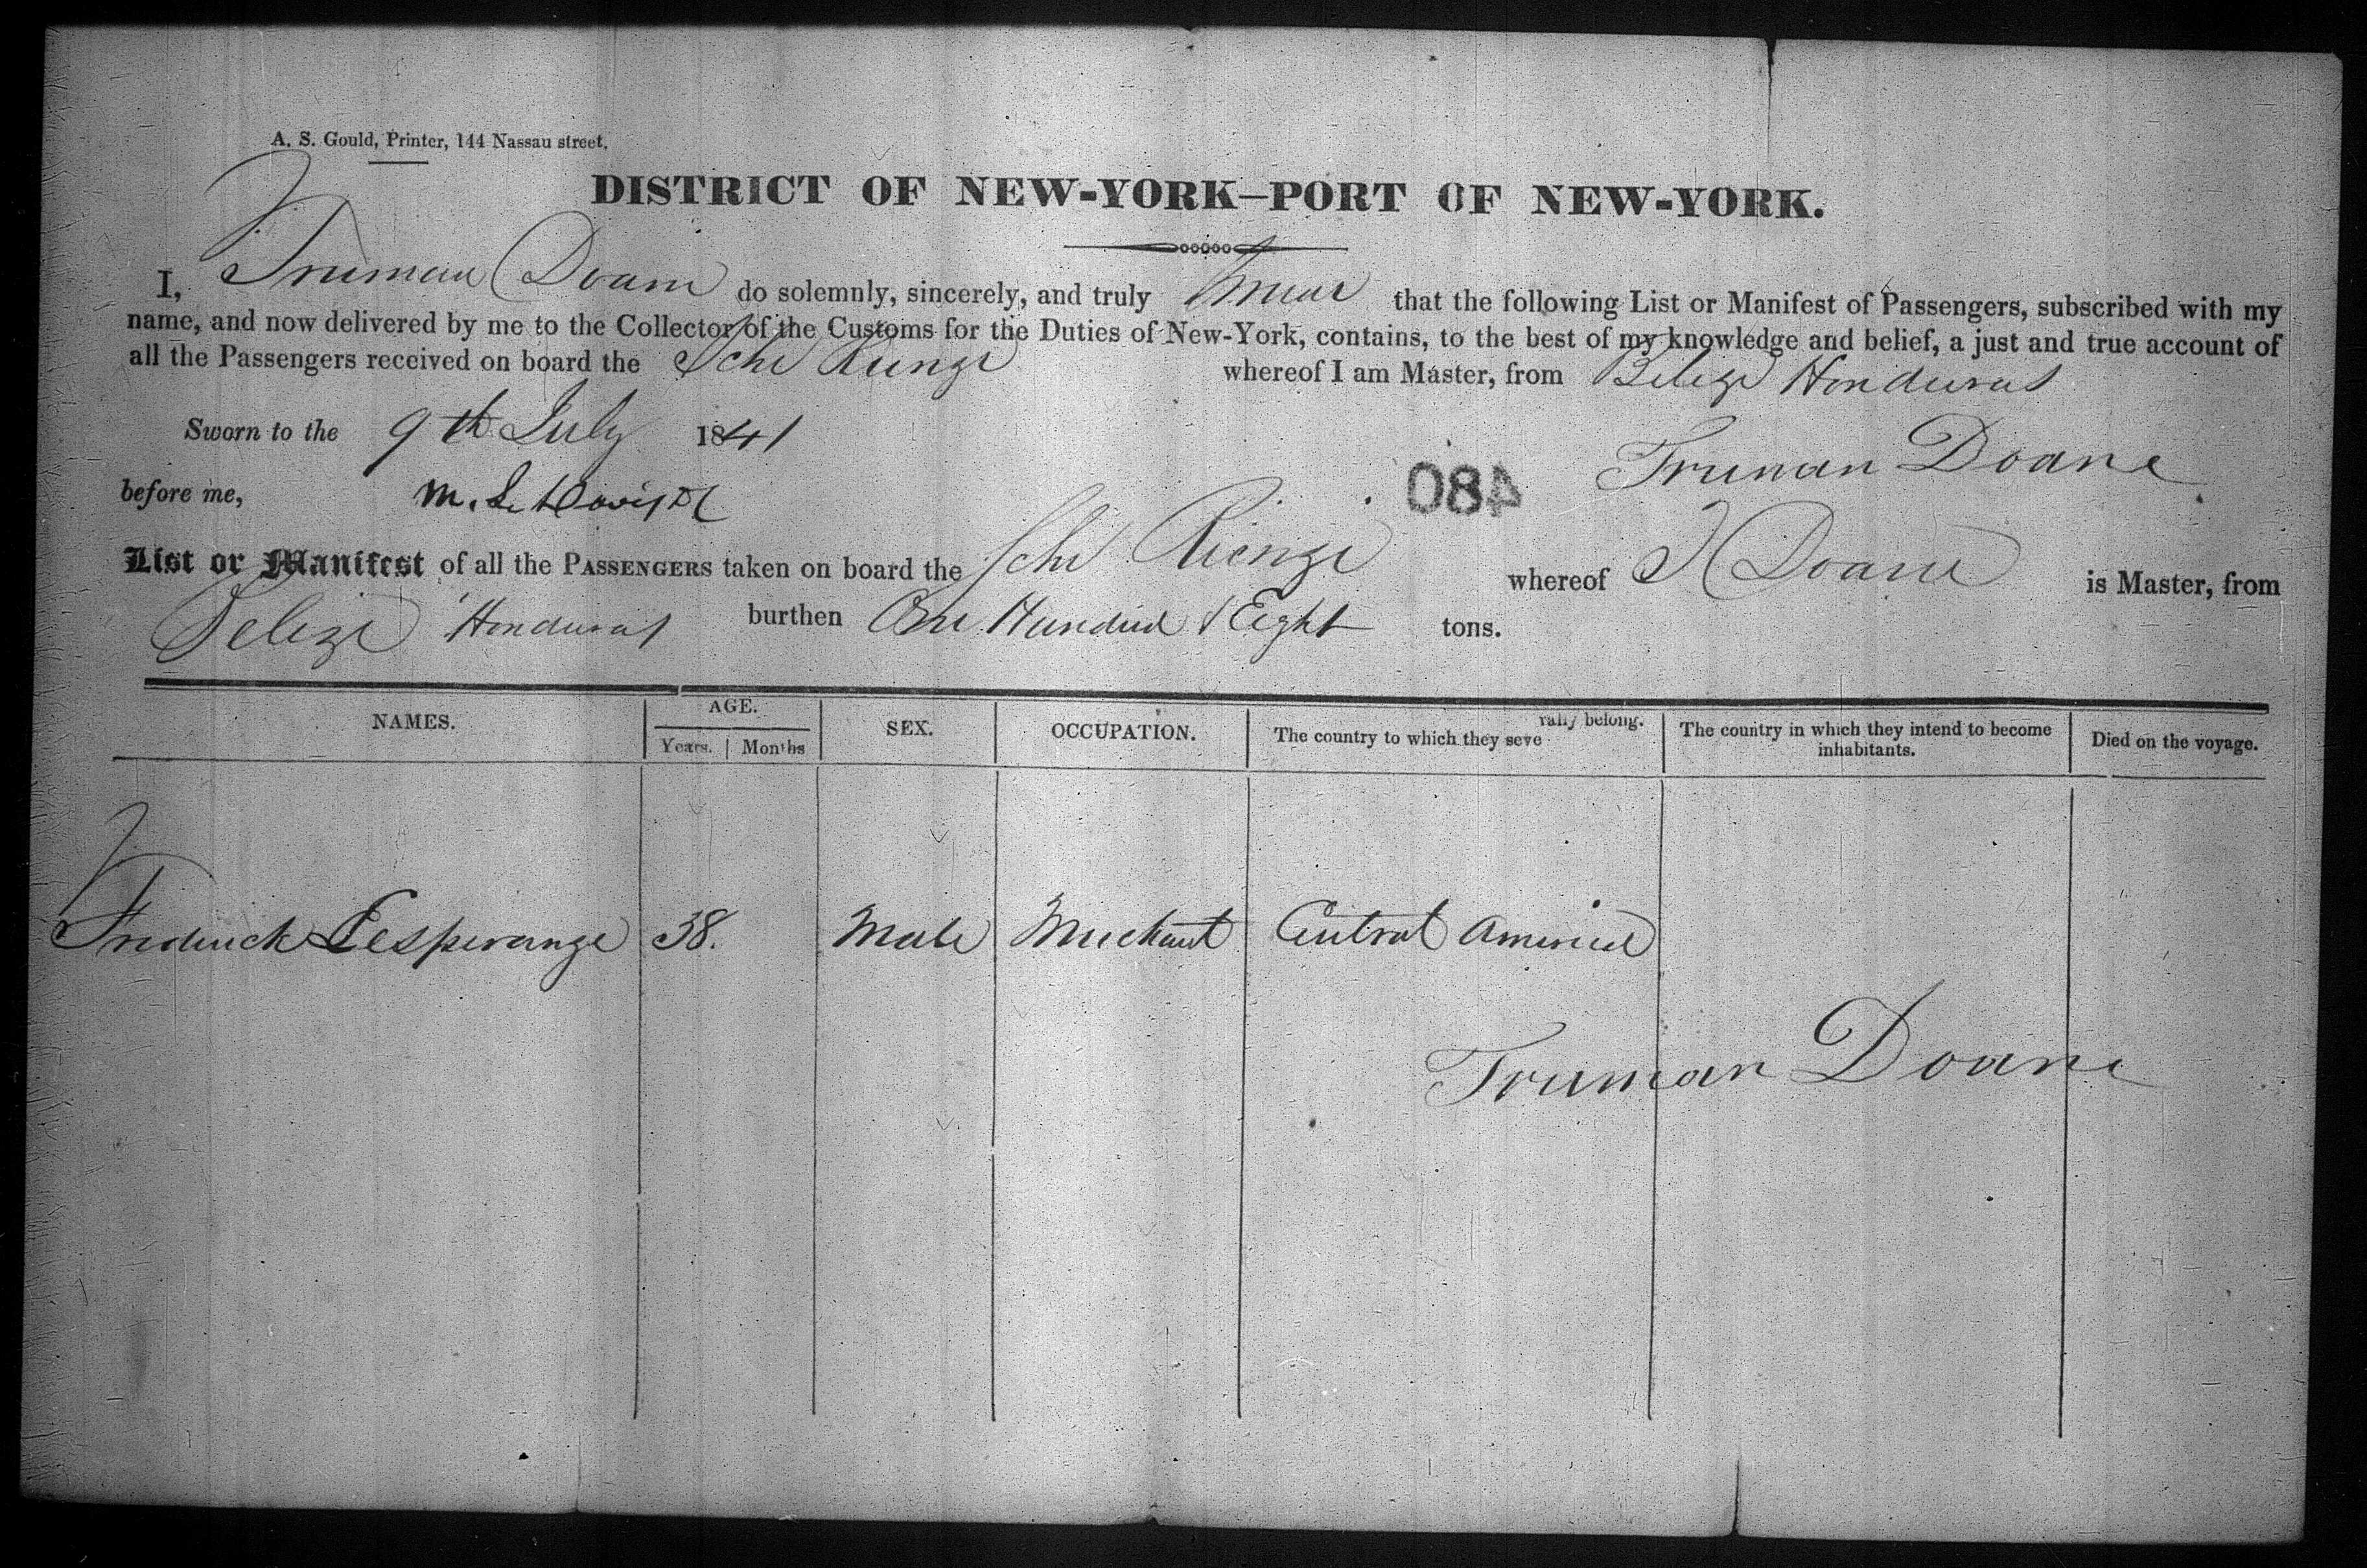 A. S. Gould, Printer, 144 Nassau street.
DISTRICT OF NEW-YORK—PORT OF NEW-YORK.
I, Truman Doane do solemnly, sincerely, and truly swear that the following List or Manifest of Passengers, subscribed with my
name, and now delivered by me to the Collector of the Customs for the Duties of New-York, contains, to the best of my knowledge and belief, a just and true account of
all the Passengers received on board the Schr Rienzi whereof I am Master, from Belize Honduras
Sworn to the 9th July 1841
Truman Doane
before me,
480
List or Manifest of all the PASSENGERS taken on board the Schr Rienzi whereof T Doane is Master, from
Belize Honduras burthen One Hundred & Eight tons.
NAMES. AGE. SEX. OCCUPATION. The country to which they severally belong. The country in which they intend to become inhabitants. Died on the voyage.
Years. Months
Frederick Lesperange 38. Male Merchant Central America
Truman Doane